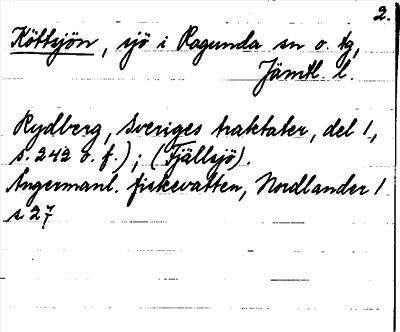 2.
Köttsjön, sjö i Ragunda sn o. tg,
Jämtl. l.
Rydberg, Sveriges traktater, del 1,
s. 242 o. f.); (Fjällsjö).
Ångermanl. fiskevatten, Nordlander 1
s 27